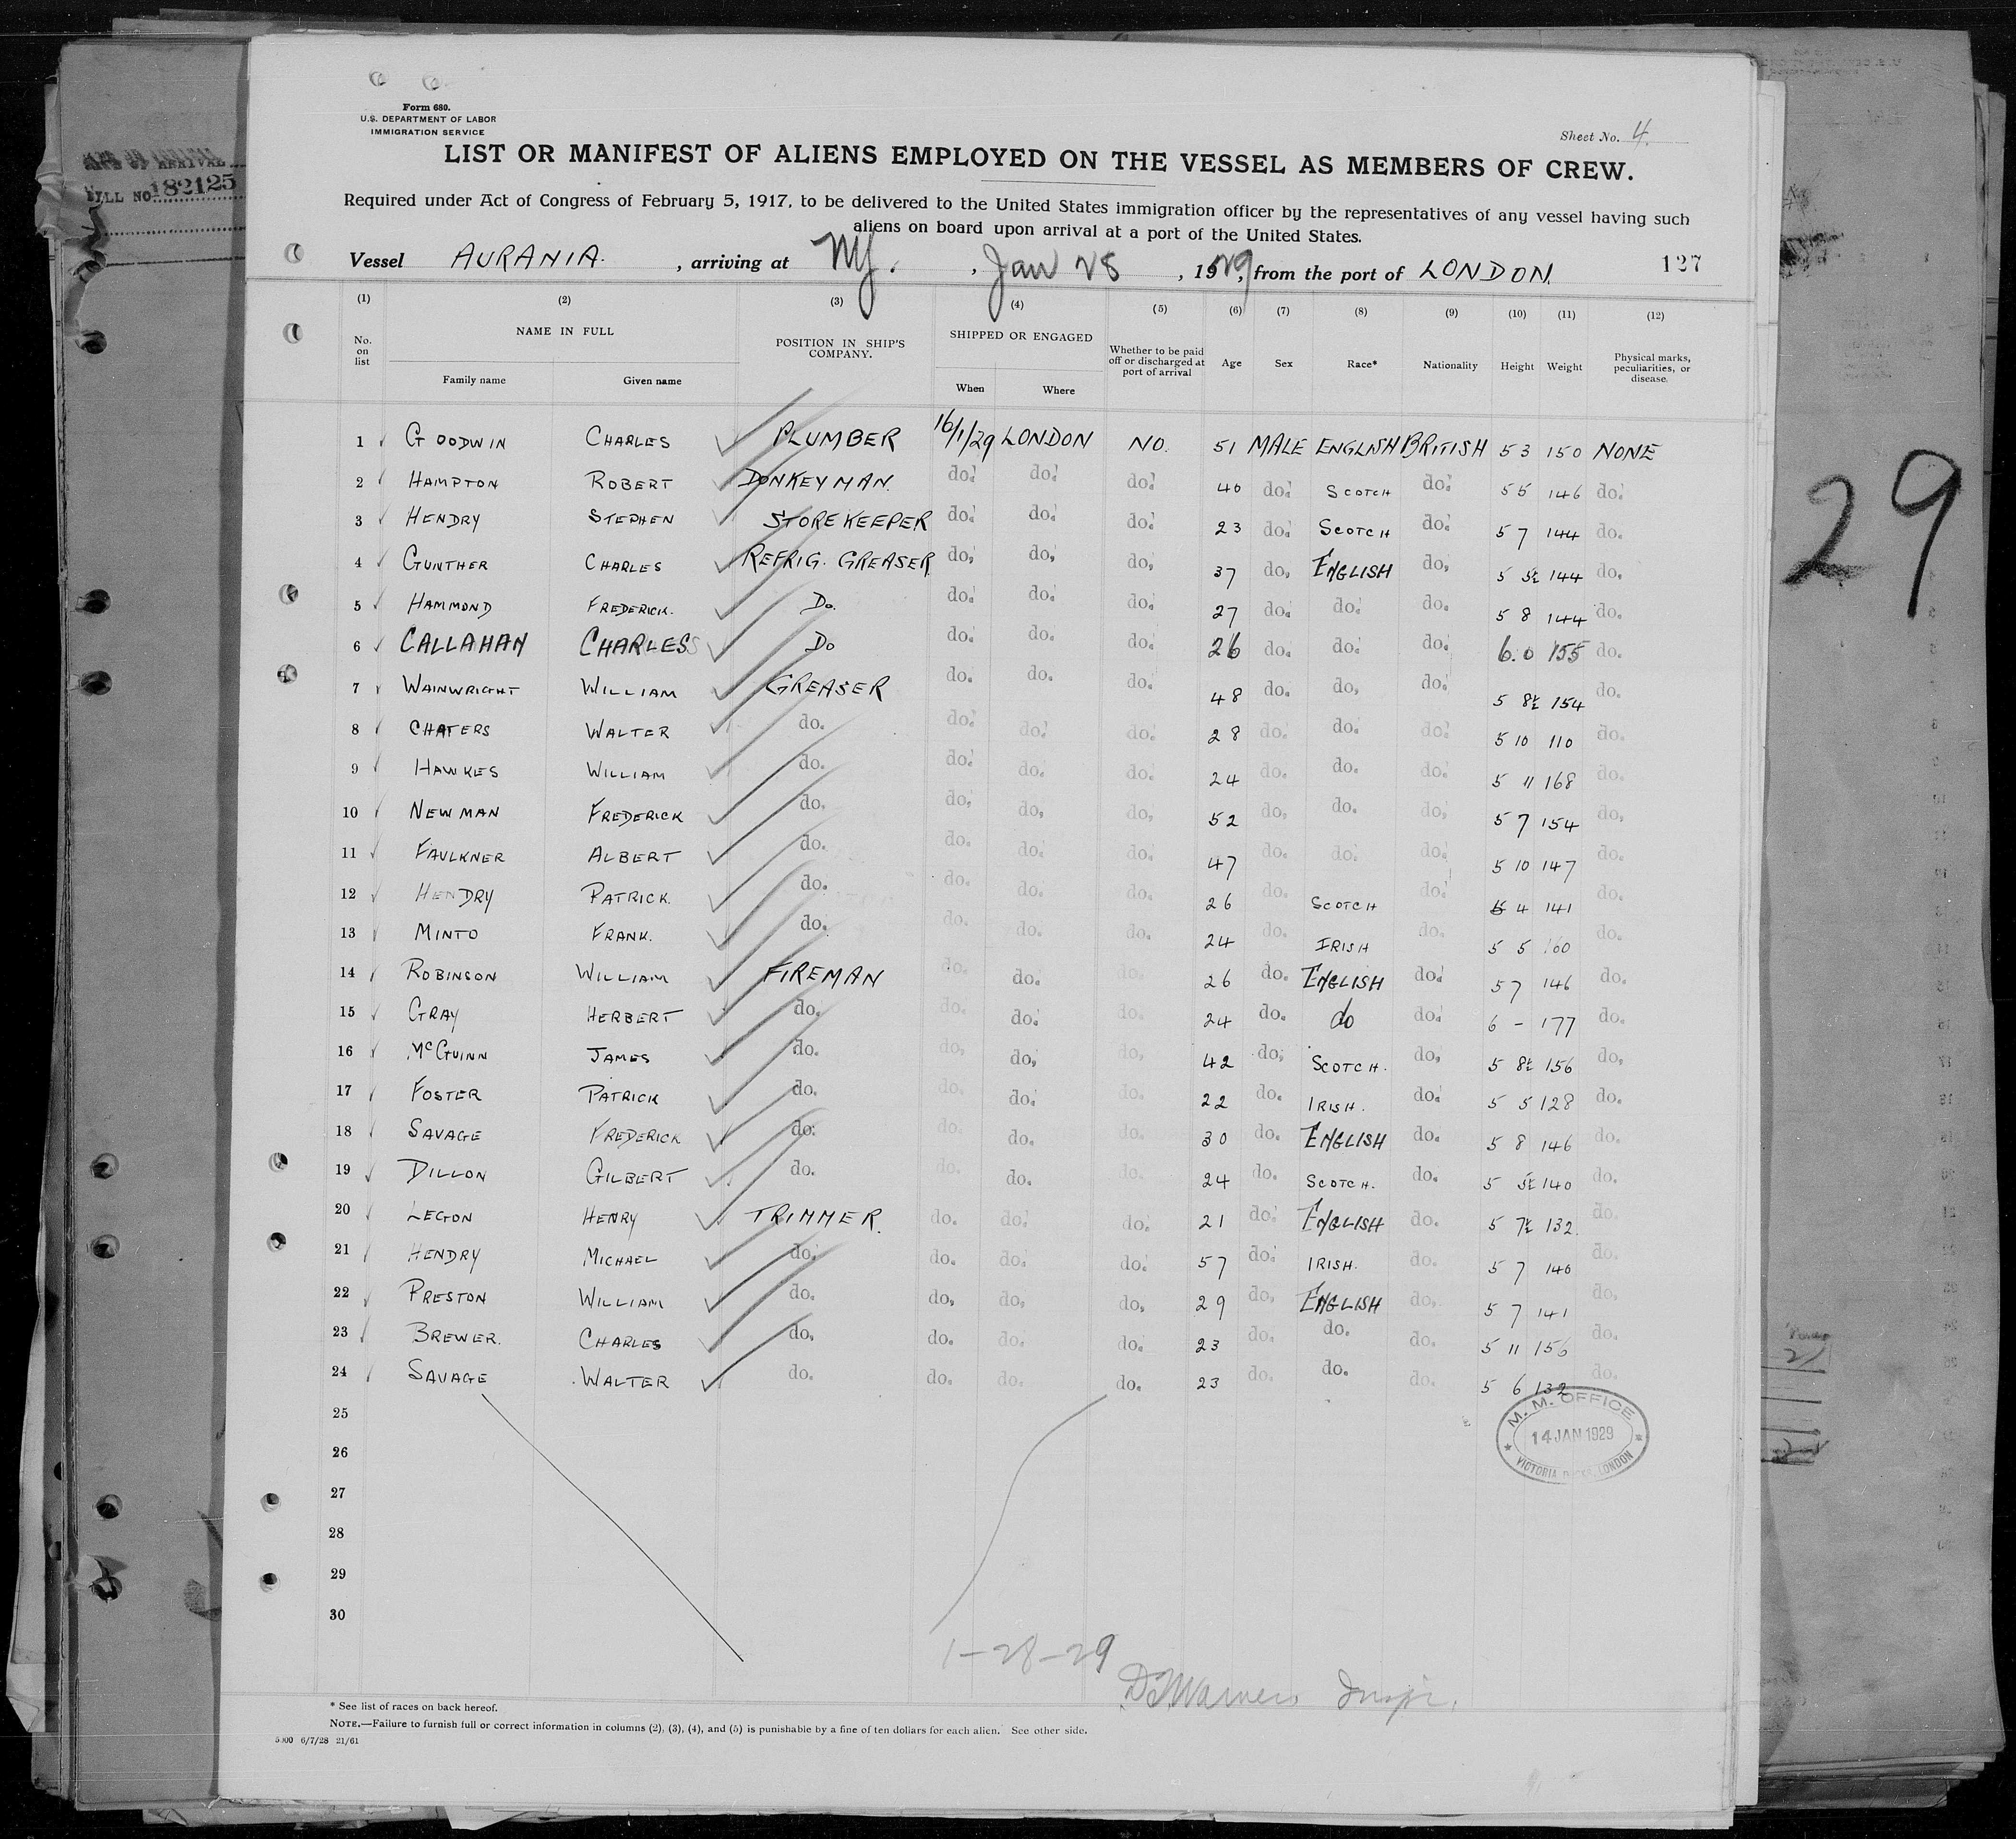 BILL NO. 182125
Form 680.
U.S. DEPARTMENT OF LABOR
IMMIGRATION SERVICE
Sheet No. 4.
LIST OR MANIFEST OF ALIENS EMPLOYED ON THE VESSEL AS MEMBERS OF CREW.
Required under Act of Congress of February 5, 1917, to be delivered to the United States immigration officer by the representatives of any vessel having such
aliens on board upon arrival at a port of the United States.
Vessel AURANIA. , arriving at NY. , Jan 28 , 1929, from the port of LONDON. 127
(1) (2) (3) (4) (5) (6) (7) (8) (9) (10) (11) (12)
No. on list NAME IN FULL Family name Given name POSITION IN SHIP'S COMPANY. SHIPPED OR ENGAGED When Where Whether to be paid off or discharged at port of arrival Age Sex Race* Nationality Height Weight Physical marks, peculiarities, or disease.
1 GOODWIN CHARLES PLUMBER 16/1/29 LONDON NO. 51 MALE ENGLISH BRITISH 5 3 150 NONE
2 HAMPTON ROBERT DONKEYMAN. do. do. do. 40 do. SCOTCH do. 5 5 146 do.
3 HENDRY STEPHEN STOREKEEPER do. do. do. 23 do. SCOTCH do. 5 7 144 do.
4 GUNTHER CHARLES REFRIG. GREASER. do. do. do. 37 do. ENGLISH do. 5 5½ 144 do.
5 HAMMOND FREDERICK. Do. do. do. do. 27 do. do. do. 5 8 144 do.
6 CALLAHAN CHARLES Do do. do. do. 26 do. do. do. 6.0 155 do.
7 WAINWRIGHT WILLIAM GREASER do. do. do. 48 do. do. do. 5 8½ 154 do.
8 CHATERS WALTER do. do. do. do. 28 do. do. do. 5 10 110 do.
9 HAWKES WILLIAM do. do. do. do. 24 do. do. do. 5 11 168 do.
10 NEWMAN FREDERICK do. do. do. do. 52 do. do. do. 5 7 154 do.
11 FAULKNER ALBERT do. do. do. do. 47 do. do. do. 5 10 147 do.
12 HENDRY PATRICK. do. do. do. do. 26 do. SCOTCH do. 5 4 141 do.
13 MINTO FRANK. do. do. do. do. 24 do. IRISH do. 5 5 160 do.
14 ROBINSON WILLIAM FIREMAN do. do. do. 26 do. ENGLISH do. 5 7 146 do.
15 GRAY HERBERT do. do. do. do. 24 do. do do. 6 - 177 do.
16 McGUINN JAMES do. do. do. do. 42 do. SCOTCH. do. 5 8½ 156 do.
17 FOSTER PATRICK do. do. do. do. 22 do. IRISH. do. 5 5 128 do.
18 SAVAGE FREDERICK do. do. do. do. 30 do. ENGLISH do. 5 8 146 do.
19 DILLON GILBERT do. do. do. do. 24 do. SCOTCH. do. 5 5½ 140 do.
20 LEGON HENRY TRIMMER. do. do. do. 21 do. ENGLISH do. 5 7½ 132. do.
21 HENDRY MICHAEL do. do. do. do. 57 do. IRISH. do. 5 7 140 do.
22 PRESTON WILLIAM do. do. do. do. 29 do. ENGLISH do. 5 7 141 do.
23 BREWER. CHARLES do. do. do. do. 23 do. do. do. 5 11 156 do.
24 SAVAGE WALTER do. do. do. do. 23 do. do. do. 5 6 132 do.
25
26
27
28
29
30
M. M. OFFICE
14 JAN 1929
VICTORIA DOCKS, LONDON
29
1-28-29
Inspr.
* See list of races on back hereof.
NOTE.—Failure to furnish full or correct information in columns (2), (3), (4), and (5) is punishable by a fine of ten dollars for each alien. See other side.
6/7/28 21/61